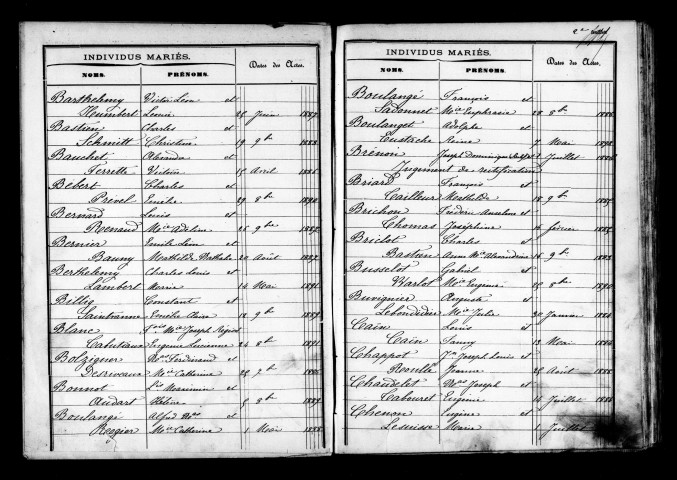 INDIVIDUS MARIÉS.
Dates des Actes.
NOMS. PRÉNOMS.
Barthelemy Victor Léon et
Humbert Louise 25 Juin 1887
Bastien Charles et
Schmitt Christine 19 9bre 1883
Bauchet et
Ferrette Victoire 15 Avril 1886
Bébert Charles et
Prevel Emélie 29 8bre 1890
Bernard Louis et
Renaud Mie Adeline 26 9bre 1882
Bernier Emile Léon et
Bauny Mathilde 20 Août 1887
Berthelemy Charles Louis et
Lambert Maria 14 Mai 1891
Billig Constant et
Emélie Claire 12 9bre 1889
Blanc Mie Joseph
Eugénie Lucienne 24 8bre 1891
Bolzigner Nas Ferdinand et
Desrivaux Mie Catherine 28 7bre 1886
Bonnot et
Audart Hélène 5 8bre 1889
Boulangé Alfred Nas et
Rogier Mie Catherine 1 Mai 1888
INDIVIDUS MARIÉS.
Dates des Actes.
NOMS. PRÉNOMS.
Boulangé François et
Sadonnet Mie Euphrasie 28 8bre 1886
Boulanget Adolphe et
Eustache Reine 7 Mai
Brénon Joseph Dominique Juillet
Jugement de rectification
Briard François et
Cailleux Mathilde 18 9bre 1885
Brichon Frédéric Anselme et
Thomas Joséphine 16 février 1882
Briclot Charles et
Bastien Anne Mie 16 9bre 1883
Busselot Gabriel et
Barlot Mie Eugénie 25 8bre 1890
Buvignier Auguste et
Lebondidier Mie Julie 20 Janvier 1884
Caïn Louis et
Caïn Fanny 13 Mai 1884
Chappot Jn Joseph Louis et
Jeanne 25 Août 1886
Chaudelot Nas Joseph et
Cabouret Eugénie 14 Juillet 1886
Chenon Eugène et
Lesuisse Marie 1 Juillet